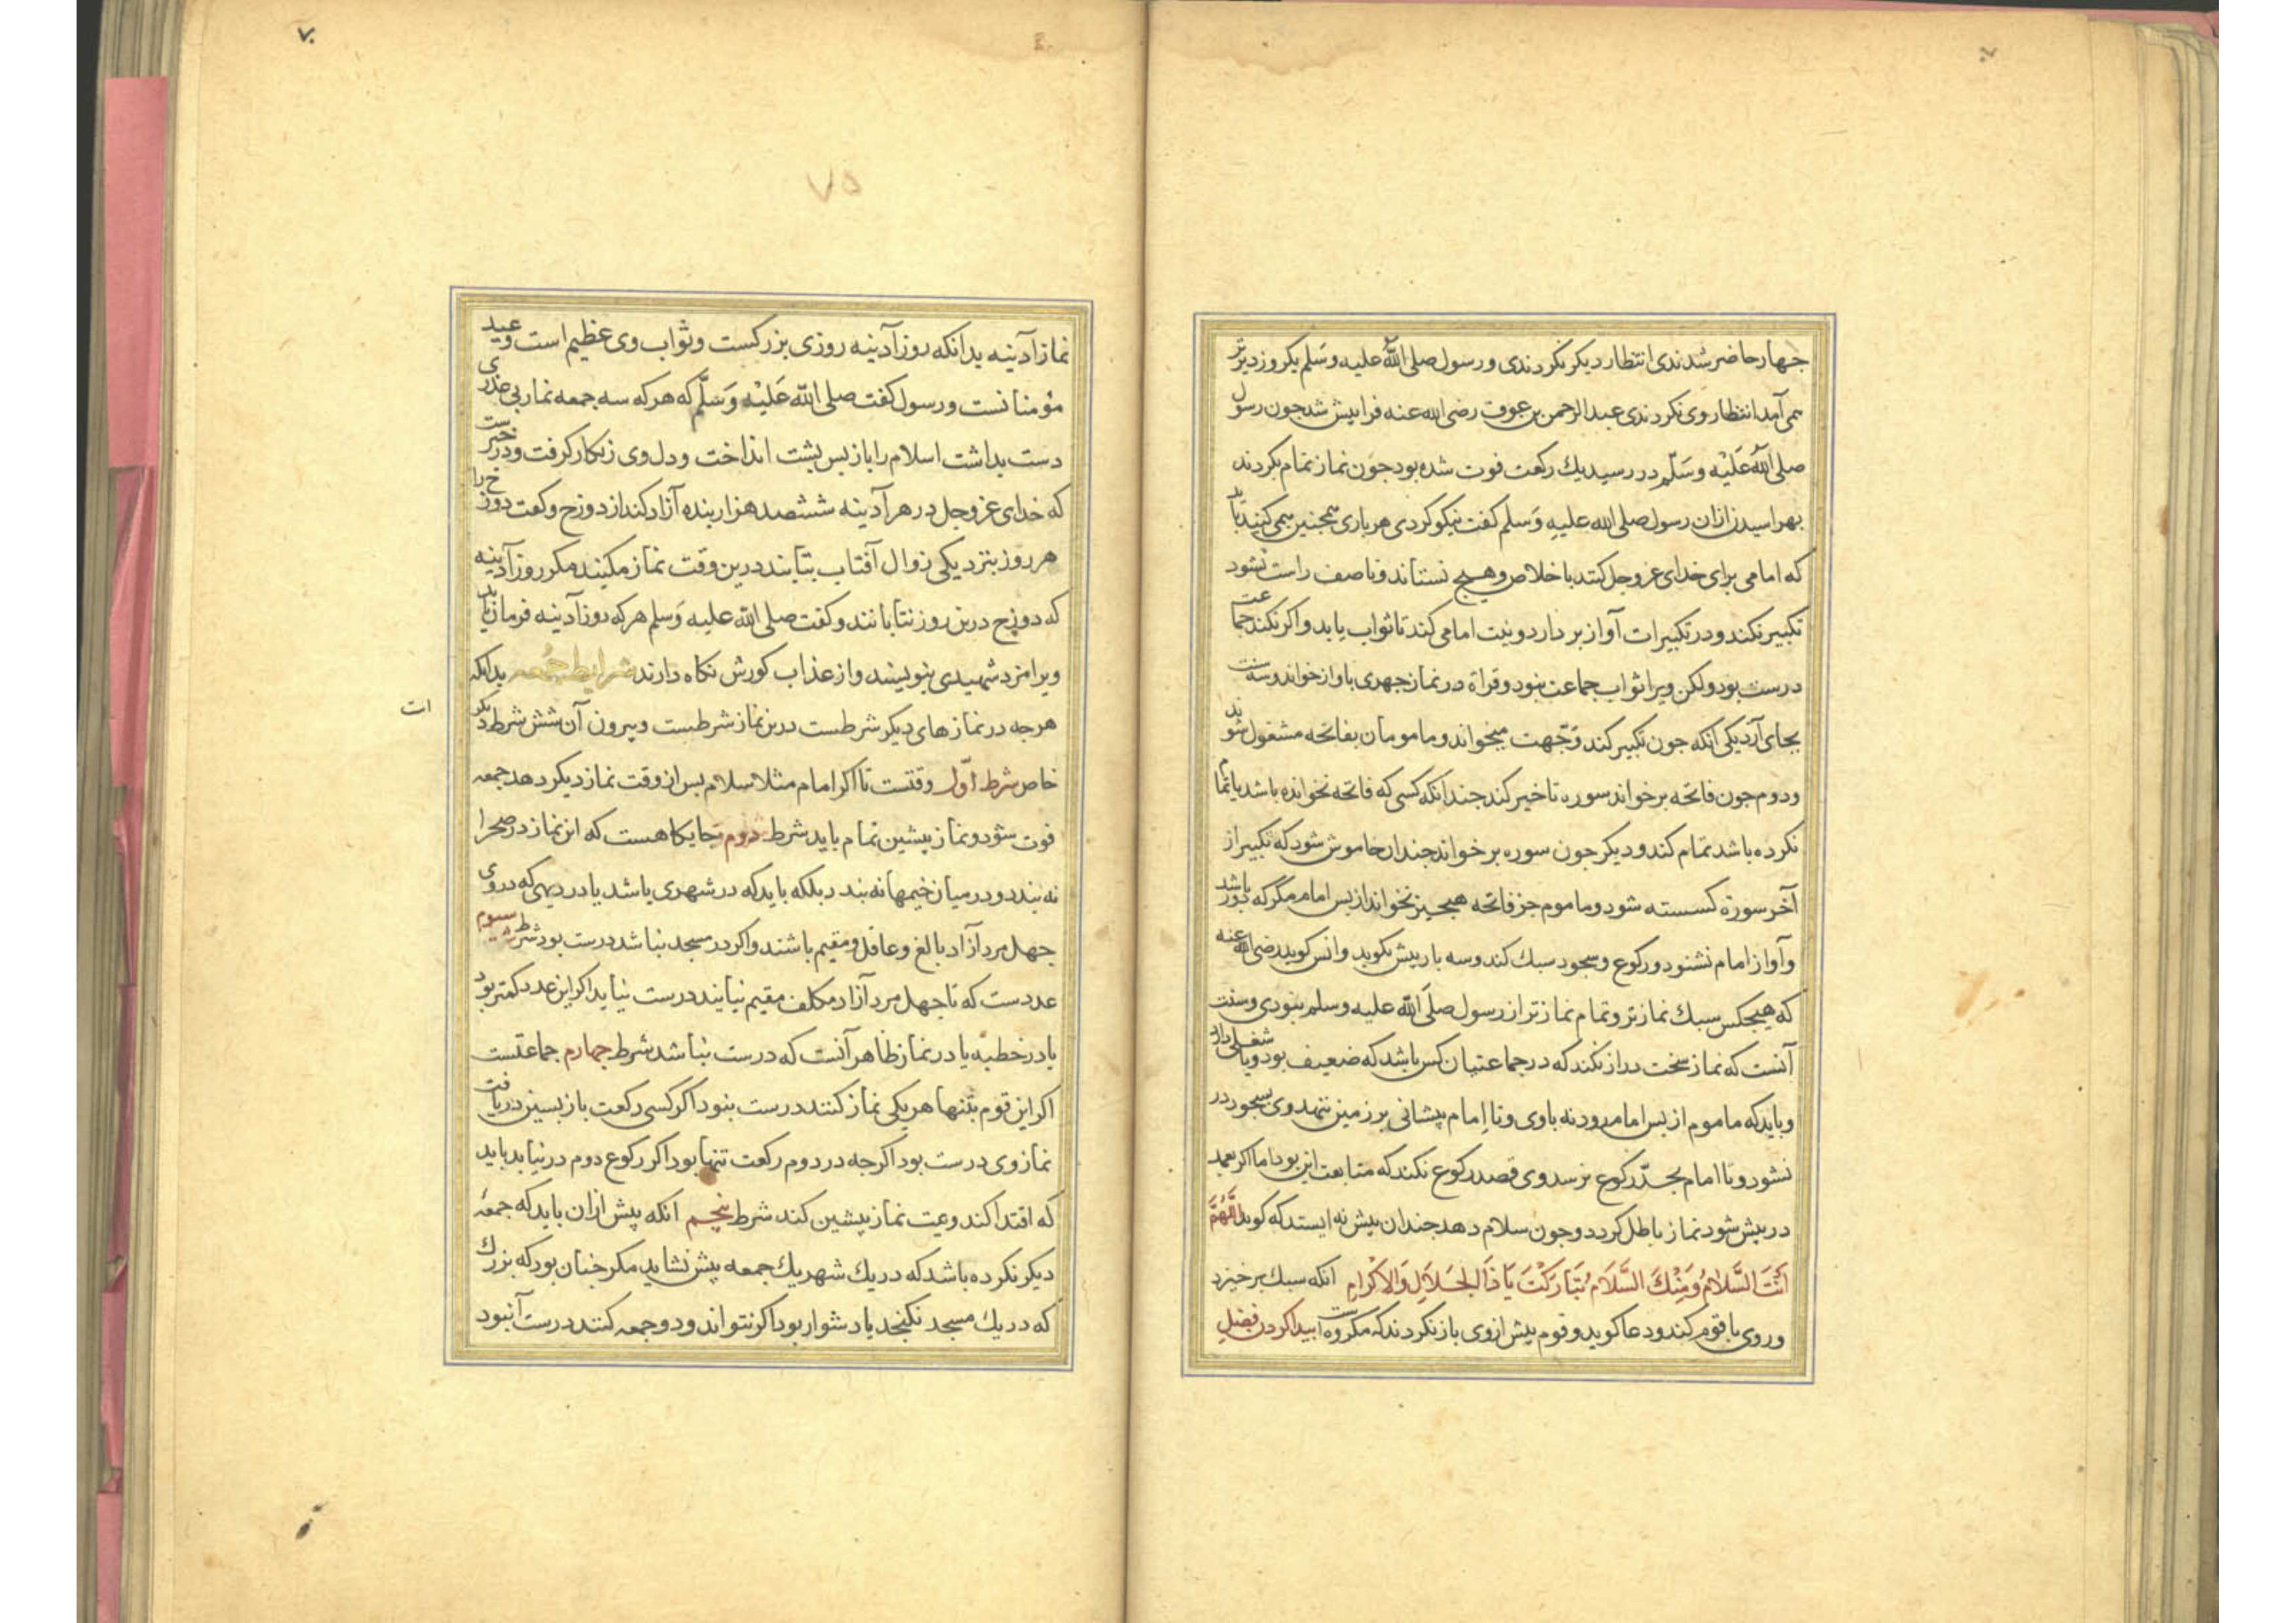 جهار حاضر شدندی انتظار دیکر نکردندی و رسول صلی الله علیه وسلم یکروز دیرتر
می آمد انتظار وی نکردندی عبد الرحمن بن عوف رضی الله عنه فرا بیش شد جون رسول
صلی الله علیه وسلم در رسید یك رکعت فوت شده بود جون نماز تمام بکردند
بهراسیدند ازان رسول صلی الله علیه وسلم کفت نیکو کردی هر باری همجنین می کنید باید
که امامی برای خدای عز وجل کند باخلاص و هیج نستاند و تا صف راست نشود
تکبیر نکند و در تکبیرات آواز بر دارد و نیت امامی کند تا ثواب یابد و اکر نکند جماعت
درست بود ولکن ویرا ثواب جماعت نبود و قراة در نماز جهری باواز خواند و سه سنت
بجای آرد یکی آنکه جون تکبیر کند وجهت میخواند و مامومان بفاتحه مشغول شوند
و دوم جون فاتحه بر خواند سوره تاخیر کند جندانکه کسی که فاتحه نخوانده باشد یا تمام
نکرده باشد تمام کند و دیکر جون سوره بر خواند جندان خاموش شود که تکبیر از
آخر سورة کسسته شود و ماموم جز فاتحه هیج جیز نخواند از بس امام مگر که دور باشد
و آواز امام نشنود و رکوع و سجود سبك کند و سه بار بیش نکوید و انس کوید رضی الله عنه
که هیجکس سبك نماز تر و تمام نماز تر از رسول صلی الله علیه وسلم نبودی و سنت
آنست که نماز سخت دراز نکند که در جماعتیان کس باشد که ضعیف بود و یا شغلی دارد
و باید که ماموم از بس امام رود نه باوی و تا امام پیشانی بر زمین ننهد وی بسجود در
نشود و تا امام بحد رکوع نرسد وی قصد رکوع نکند که متابعت این بود اما اکر بعمد
در بیش شود نماز باطل کردد و جون سلام دهد جندان بیش نه ایستد که کوید اللهم
انت السلام ومنك السلام تبارکت یا ذا الجلال والاکرام آنکه سبك برخیزد
و روی با قوم کند و دعا کوید و قوم پیش از وی باز نکردند که مکروه است بیدا کردن فضل
۷۰
۷۵
نماز آدینه بدانکه روز آدینه روزی بزرکست و ثواب وی عظیم است و عید
مؤمنانست و رسول کفت صلی الله علیه وسلم که هر که سه جمعه نماز بی عذری
دست بداشت اسلام را باز بس بشت انداخت و دل وی زنکار کرفت و در خبرست
که خدای عز وجل در هر آدینه ششصد هزار بنده آزاد کند از دوزخ و کفت دوزخ را
هر روز بنزدیکی زوال آفتاب بتابند درین وقت نماز مکنید مکر روز آدینه
که دوزخ درین روز نتابانند و کفت صلی الله علیه وسلم هر که روز آدینه فرمان یابد
ویرا مزد شهیدی بنویسند و از عذاب کورش نکاه دارند شرایط جمعه بدانکه
هر جه در نمازهای دیکر شرطست درین نماز شرطست و بیرون آن شش شرط دیکر
ات
خاص شرط اول وقتست تا اکر امام مثلا سلام بس از وقت نماز دیکر دهد جمعه
فوت شود و نماز بیشین تمام باید شرط دوم جایکاهست که این نماز در صحرا
نه بندد و در میان خیمها نه بندد بلکه باید که در شهری باشد یا در دیهی که در وی
جهل مرد آزاد بالغ و عاقل و مقیم باشند و اکر در مسجد نباشد درست بود شرط سیوم
عددست که تا جهل مرد آزاد مکلف مقیم نیایند درست نیاید اکر این عدد کمتر بود
یا در خطبه یا در نماز ظاهر آنست که درست نباشد شرط جهارم جماعتست
اکر این قوم بتنها هر یکی نماز کنند درست نبود اکر کسی رکعت باز بسین دریافت
نماز وی درست بود اکرجه در دوم رکعت تنها بود اکر رکوع دوم در نیابد باید
که اقتدا کند و نیت نماز پیشین کند شرط پنجم آنکه پیش ازان باید که جمعهٔ
دیکر نکرده باشد که در یك شهر یك جمعه پیش نشاید مکر جنان بود که بزرك
که در یك مسجد نکنجد یا دشوار بود اکر نتواند و دو جمعه کنند درست آنبود